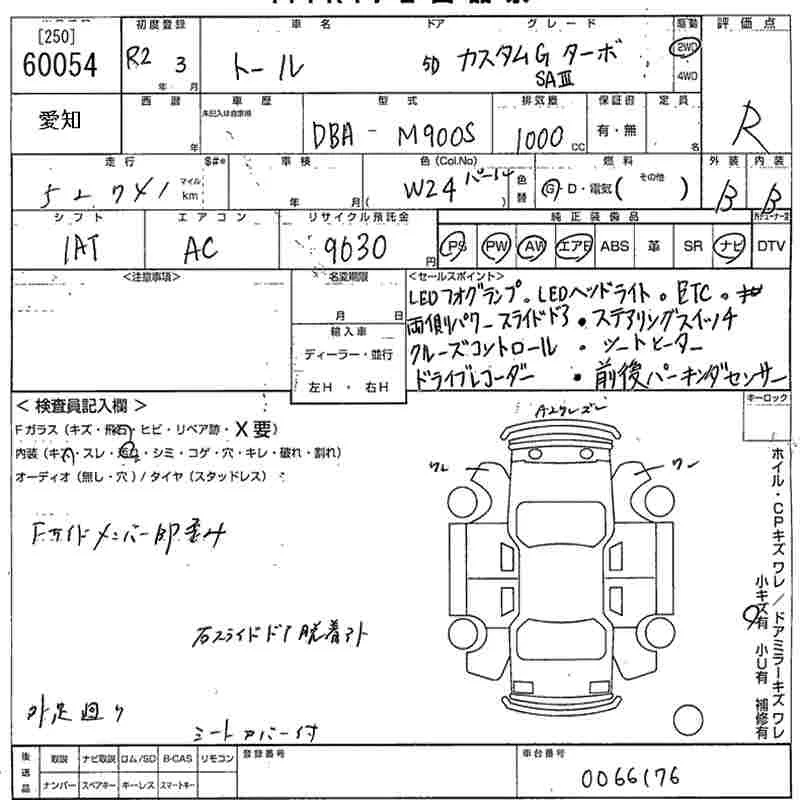 初度登録 車名 ドア グレード 駆動 評価点
[250]
60054
R2 年 3 月 トール 5D カスタムG ターボ 2WD
SAⅢ 4WD
愛知 西暦 車歴 型式 排気量 保証書 定員 R
未記入は自家用
年 DBA - M900S 1000 CC 有・無 名
走行 車検 色(Col.No) 燃料 外装 内装
52,741 マイル km 年 月 W24 パール ( ) 色替 G・D・電気( その他 ) B B
シフト エアコン リサイクル預託金 純正装備品
1AT AC 9630 円 PS PW AW エアB ABS 革 SR ナビ DTV
<注意事項> 名変期限 <セールスポイント>
月 日
LEDフォグランプ。LEDヘッドライト。ETC。
両側パワースライドドア・ステアリングスイッチ
輸入車
クルーズコントロール・シートヒーター
ディーラー・並行
ドライブレコーダー・前後パーキングセンサー
左H・右H
<検査員記入欄> キーロック
Fガラス(キズ・飛石・ヒビ・リペア跡・X要)
内装(キズ・スレ・汚れ・シミ・コゲ・穴・キレ・破れ・割れ)
オーディオ(無し・穴)/タイヤ(スタッドレス)
ワレ ワレ
Fサイドメンバー部歪み
右スライドドア脱着アト
外足廻り
シートカバー付
ホイル・CPキズ ワレ/ドアミラーキズ ワレ
小キズ有 小U有 補修有
後送品 取説 ナビ取説 ロム/SD B-CAS リモコン 登録番号 車台番号
ナンバー スペアキー キーレス スマートキー 0066176